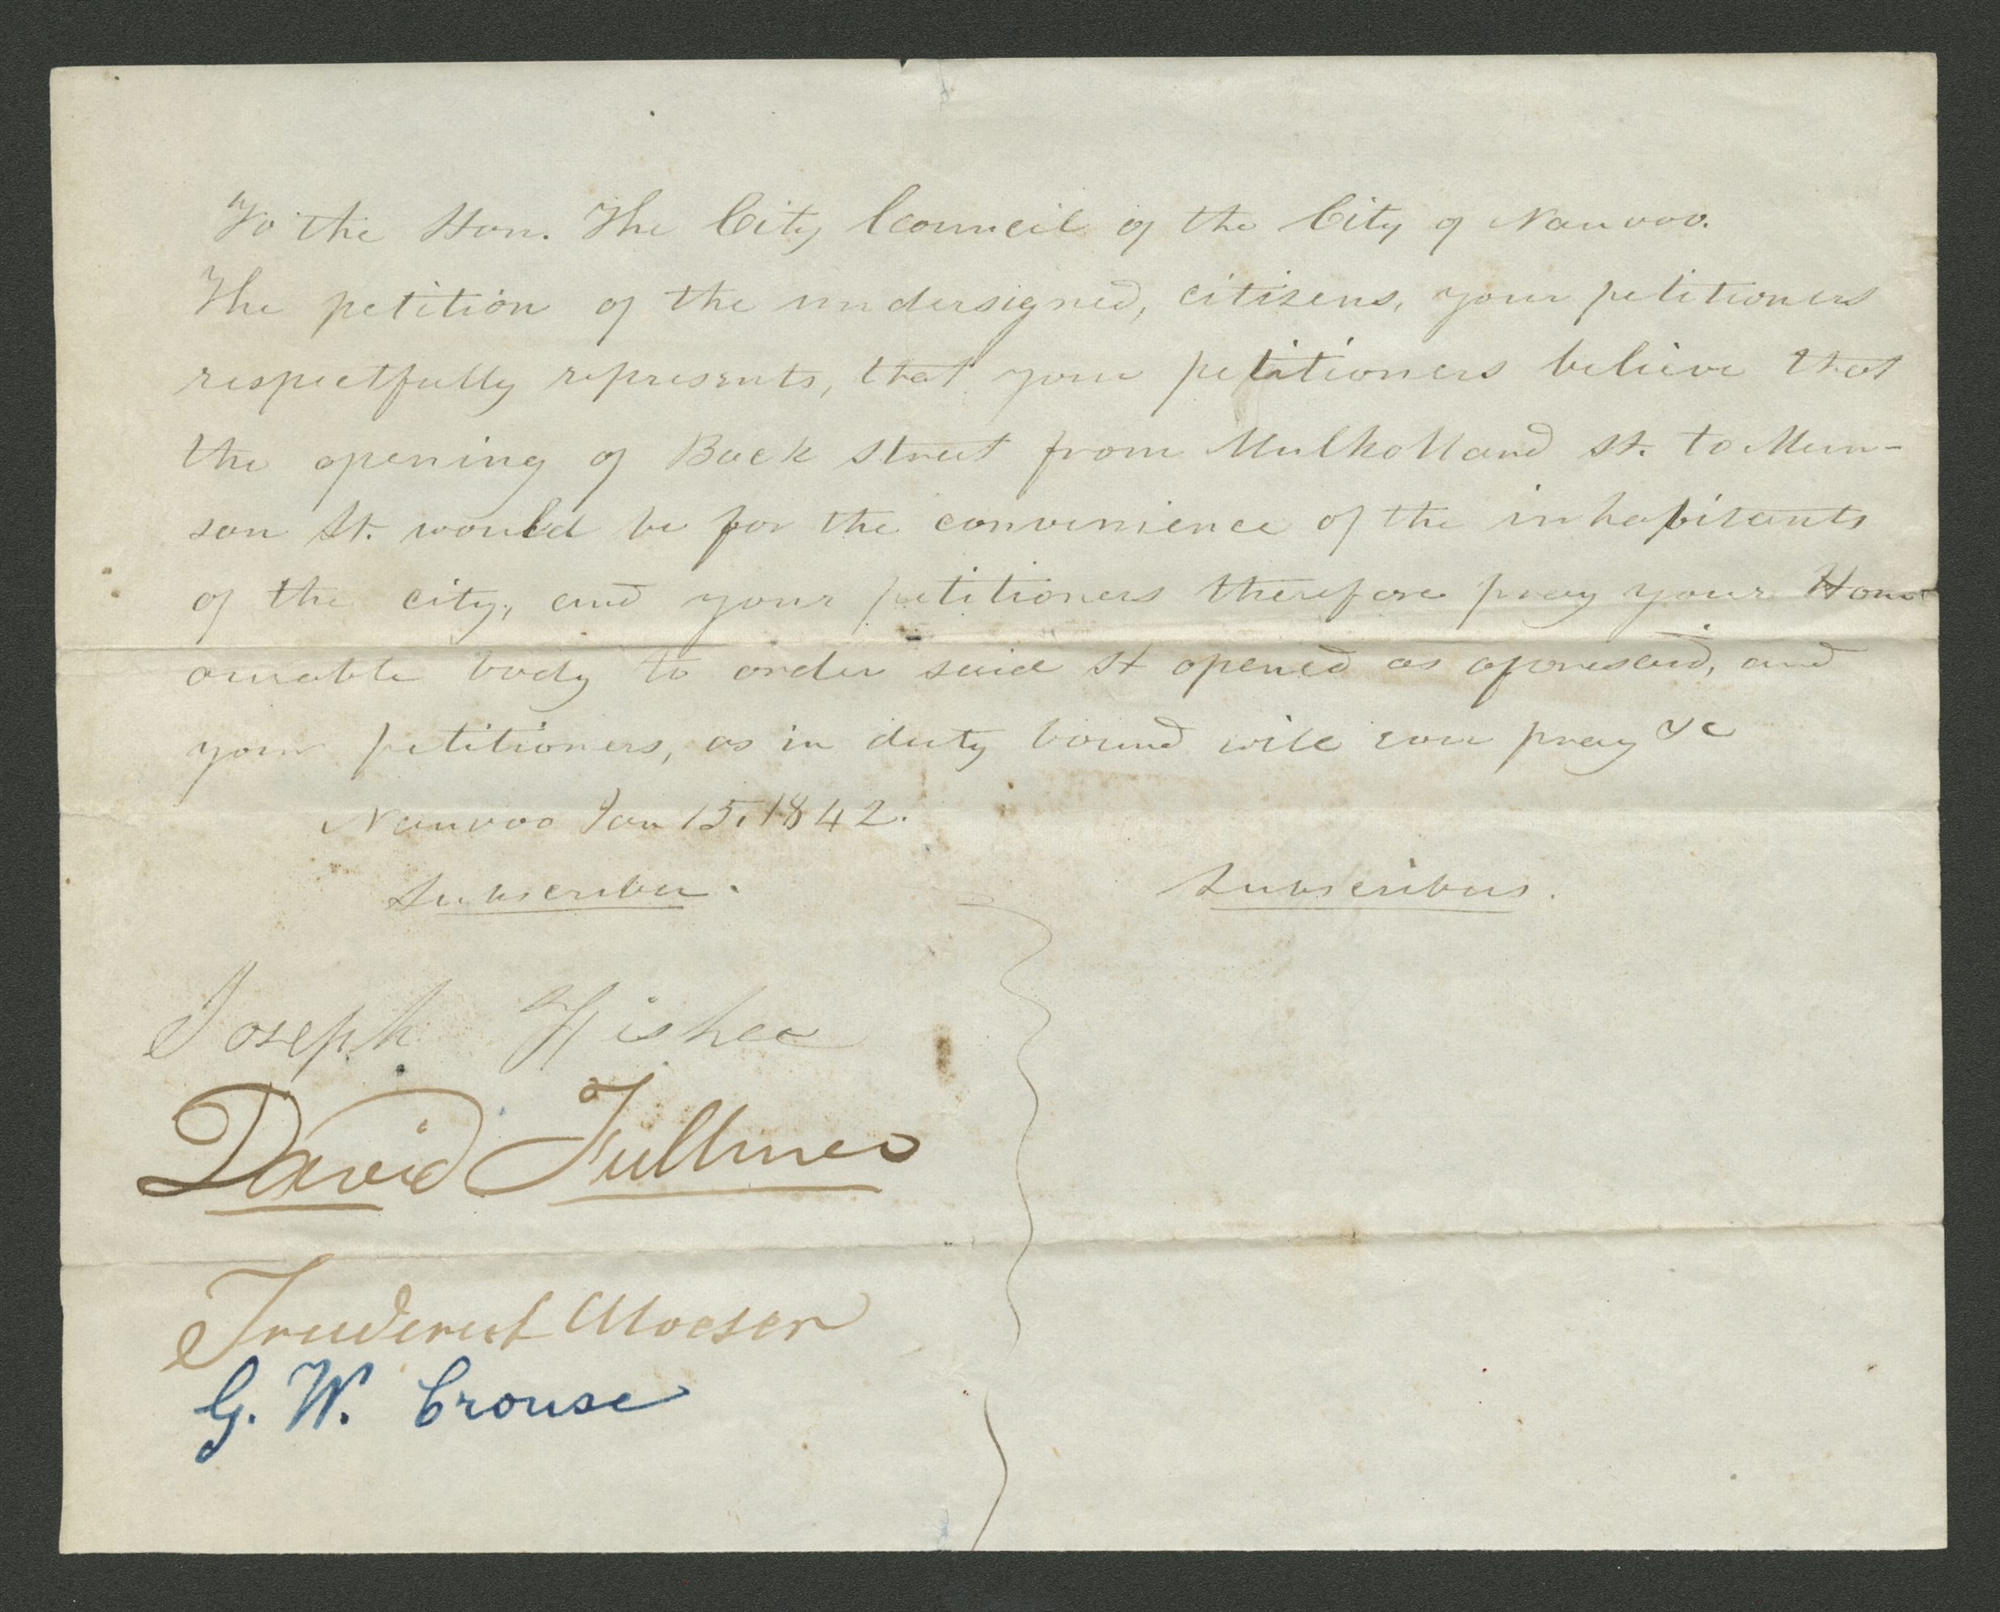 To the Hon. The City Council of the City of Nauvoo.
The petition of the undersigned, citizens, your petitioners
respectfully represents, that your petitioners believe that
the opening of Back Street from Mulholland st. to Mun-
son St. would be for the convenience of the inhabitants
of the city, and your petitioners therefore pray your Hon
ourable body to order said st opened as aforesaid, and
your petitioners, as in duty bound will ever pray &c
Nauvoo Jan 15, 1842.
Subscriber. Subscribers.
Joseph Fisher
David Fullmer
Frederick Moeser
G. W. Crouse